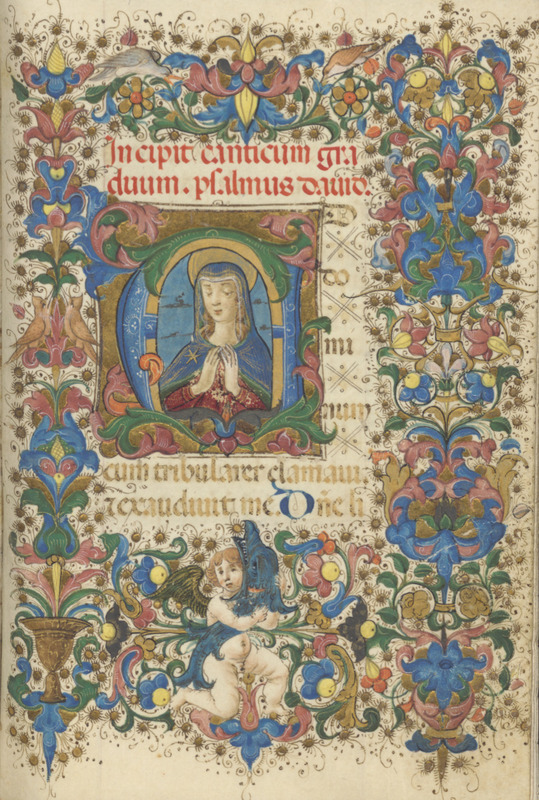 Incipit canticum gra
duum. psalmus dauid.
AD
do
mi
num
cum tribularer clamaui.
⁊ exaudiuit me. Dñe li